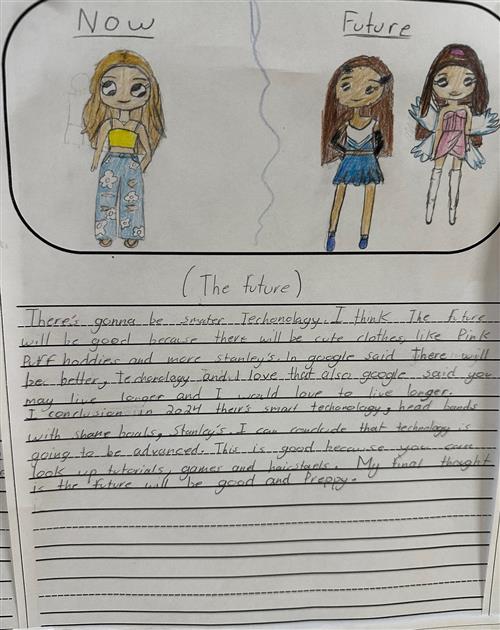 Now
Future
(The future)
There's gonna be smarter Techonology. I think The future
will be good because there will be cute clothes, like Pink
Puff hoddies and more stanley's. In google said there will
be better, techonology and I love that also google said you
may live longer and I would love to live longer.
I conclusion in 2024 their's smart techonology, head bands
with
Stanley's. I can conclude that technology is
going to be advanced. This is good because you can
look up tutorials, games and
My final thought
is the future will be good and Preppy.